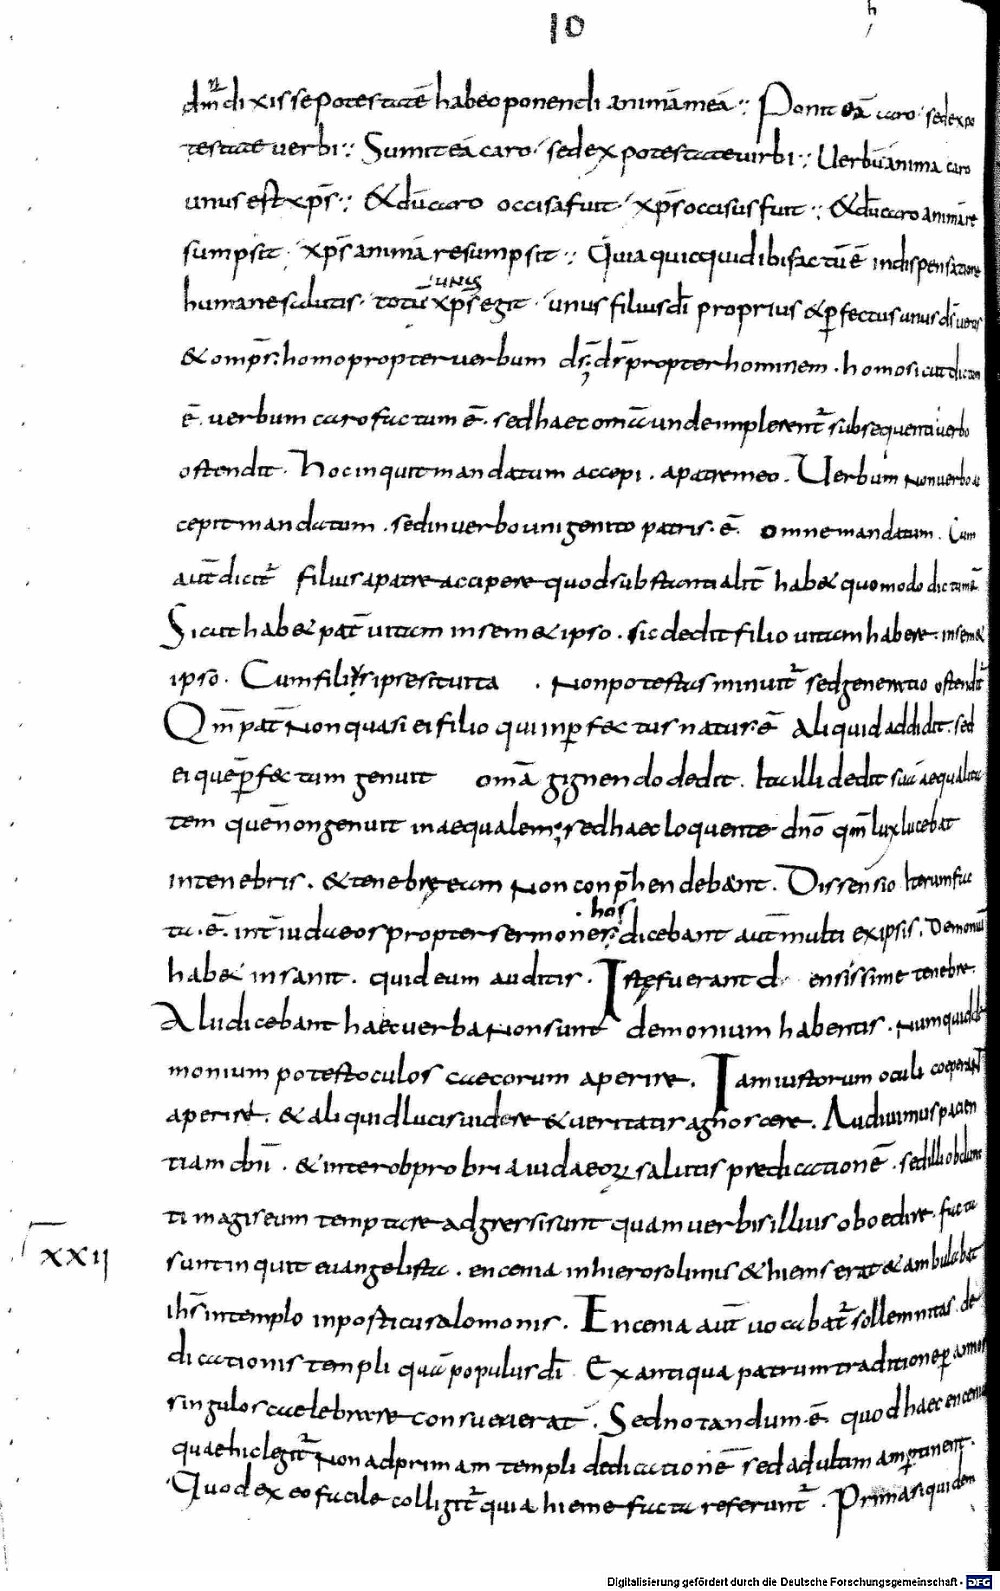 10
dm̄ dixisse potestatē habeo ponendi animā meā : Ponit eā caro · sed ex po
testate verbi : Sumit eā caro · sed ex potestate virbi : Uerbū anima caro
unus est xp̄s : & dū caro occisa fuit · xp̄s occisus fuit : & dū caro animā re
sumpsit · xp̄s animā resumpsit : Quia quicquid ibi factū ē in dispensatione
humane salutis · totū unus xp̄s egit · unus filius dī proprius & ꝑfectus unus ds̄ uerus
& omp̄s · homo propter uerbum ds̄; ds̄ propter hominem · homo sicut dictum
ē · uerbum caro factum ē · sed haec omā unde implerent̄ subsequenti uerbo
ostendit · Hoc inquit mandatum accepi · a patre meo · Uerbum non uerbo ac
cepit mandatum · sed in uerbo unigenito patris · ē · omne mandatum · Cum
aut̄ dicit̄ filius a patre accipere quod substantialit̄ hab& quomodo dictum ē
Sicut hab& pat̄ uitam in sem& ipso · sic dedit filio uitam habere · in sem&
ipso · Cum filius ipse sit uita · Non potestas minuit̄ sed generatio ostendit̄
Qm̄ pat̄ non quasi ei filio qui inꝑfectus natus · ē aliquid addidit · sed
ei quē ꝑfectum genuit omā gignendo dedit · Ita illi dedit suā aequalita
tem quē non genuit inaequalem; sed haec loquente dn̄o qm̄ lux lucebat
in tenebris · & tenebrę eum non conp̄hendebant · Dissensio iterum fac
ta · ē · int̄ iudaeos propter sermones hos · dicebant aut̄ multi ex ipsis · Demoniū
hab& insanit · quid eum auditis · Istę fuerant d ensissime tenebre ·
Alii dicebant haec uerba non sunt demonium habentis · Numquid de
monium potest oculos caecorum aperire · Iam iustorum oculi coeperant
aperire · & aliquid lucis uidere & ueritatis agnoscere · Audiuimus pacien
tiam dnī · & inter obprobria iudaeoꝝ salutis predicationē · sed illi obdura
ti magis eum temptare adgressi sunt quam uerbis illius oboedire · facta
XXII
sunt inquit euangelista · encenia in hierosolimis & hiems erat & ambulabat
ihs̄ in templo in porticu salomonis · Encenia aut̄ uocabat̄ sollemnitas · de
dicationis templi quā populus dī Ex antiqua patrum traditione ꝑ annos
singulos caelebrare consueuerat · Sed notandum · ē quod haec encenia
quae hic legit̄ non ad primam templi dedicationē sed ad ultimam ꝑtinent ·
Quod ex eo facile colligit̄ quia hieme facta referunt̄ · Prima siquidem
Digitalisierung gefördert durch die Deutsche Forschungsgemeinschaft · DFG